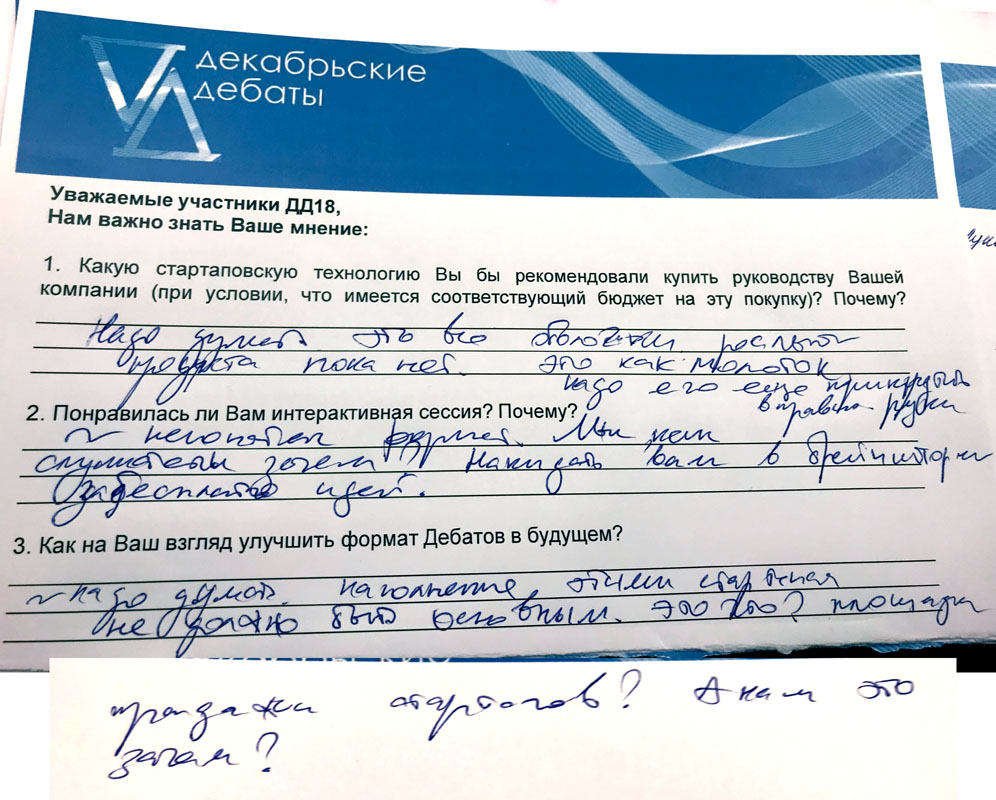 декабрьские
дебаты
Уважаемые участники ДД18,
Нам важно знать Ваше мнение:
1. Какую стартаповскую технологию Вы бы рекомендовали купить руководству Вашей
компании (при условии, что имеется соответствующий бюджет на эту покупку)? Почему?
Надо думать. это все
продукта пока нет. это как молоток
надо его еще прикрутить
в руки
2. Понравилась ли Вам интерактивная сессия? Почему?
~ непонятен формат. Мы как
слушатели зачем накидать вам в брейншторм
забесплатно идей.
3. Как на Ваш взгляд улучшить формат Дебатов в будущем?
~ надо думать. наполнение этими
не должно быть основным. это что? площадка
продажи стартапов? А нам это
зачем?